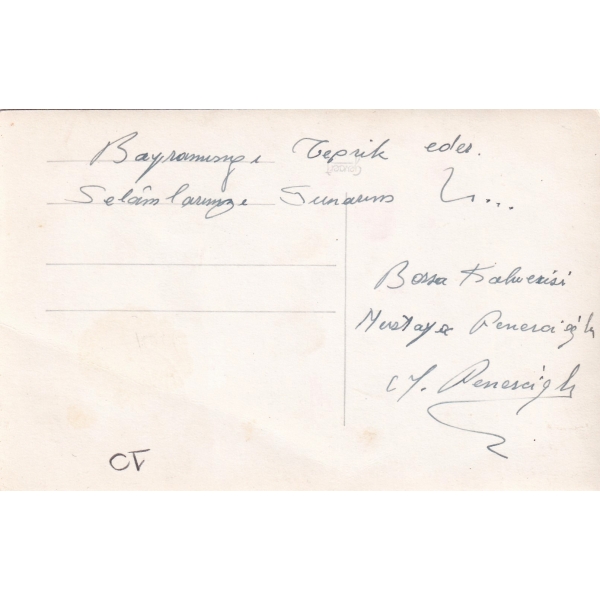 Bayramınızı Tebrik eder.
Selâmlarımızı Sunarım
Borsa Kahvecisi
Mustafa Penescioğlu
M. Penescioğlu
CT